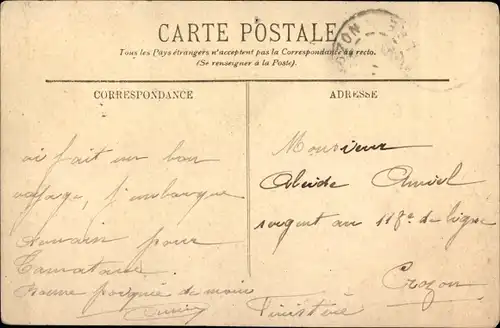 CARTE POSTALE
Tous les Pays étrangers n'acceptent pas la Correspondance au recto.
(Se renseigner à la Poste).
CROZON
CORRESPONDANCE
ADRESSE
ai fait un bon
voyage, j'embarque
demain pour
Tamatave
Bonne poignée de mains
Monsieur
Alcide Amiel
sergent au 118e de ligne
Crozon
Finistère